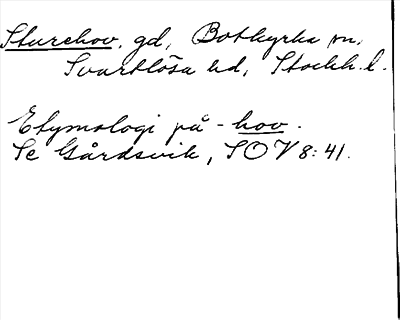 Sturehov, gd, Botkyrka sn,
Svartlösa hd, Stockh. l.
Etymologi på -hov.
Se Gårdsvik, SOV 8:41.